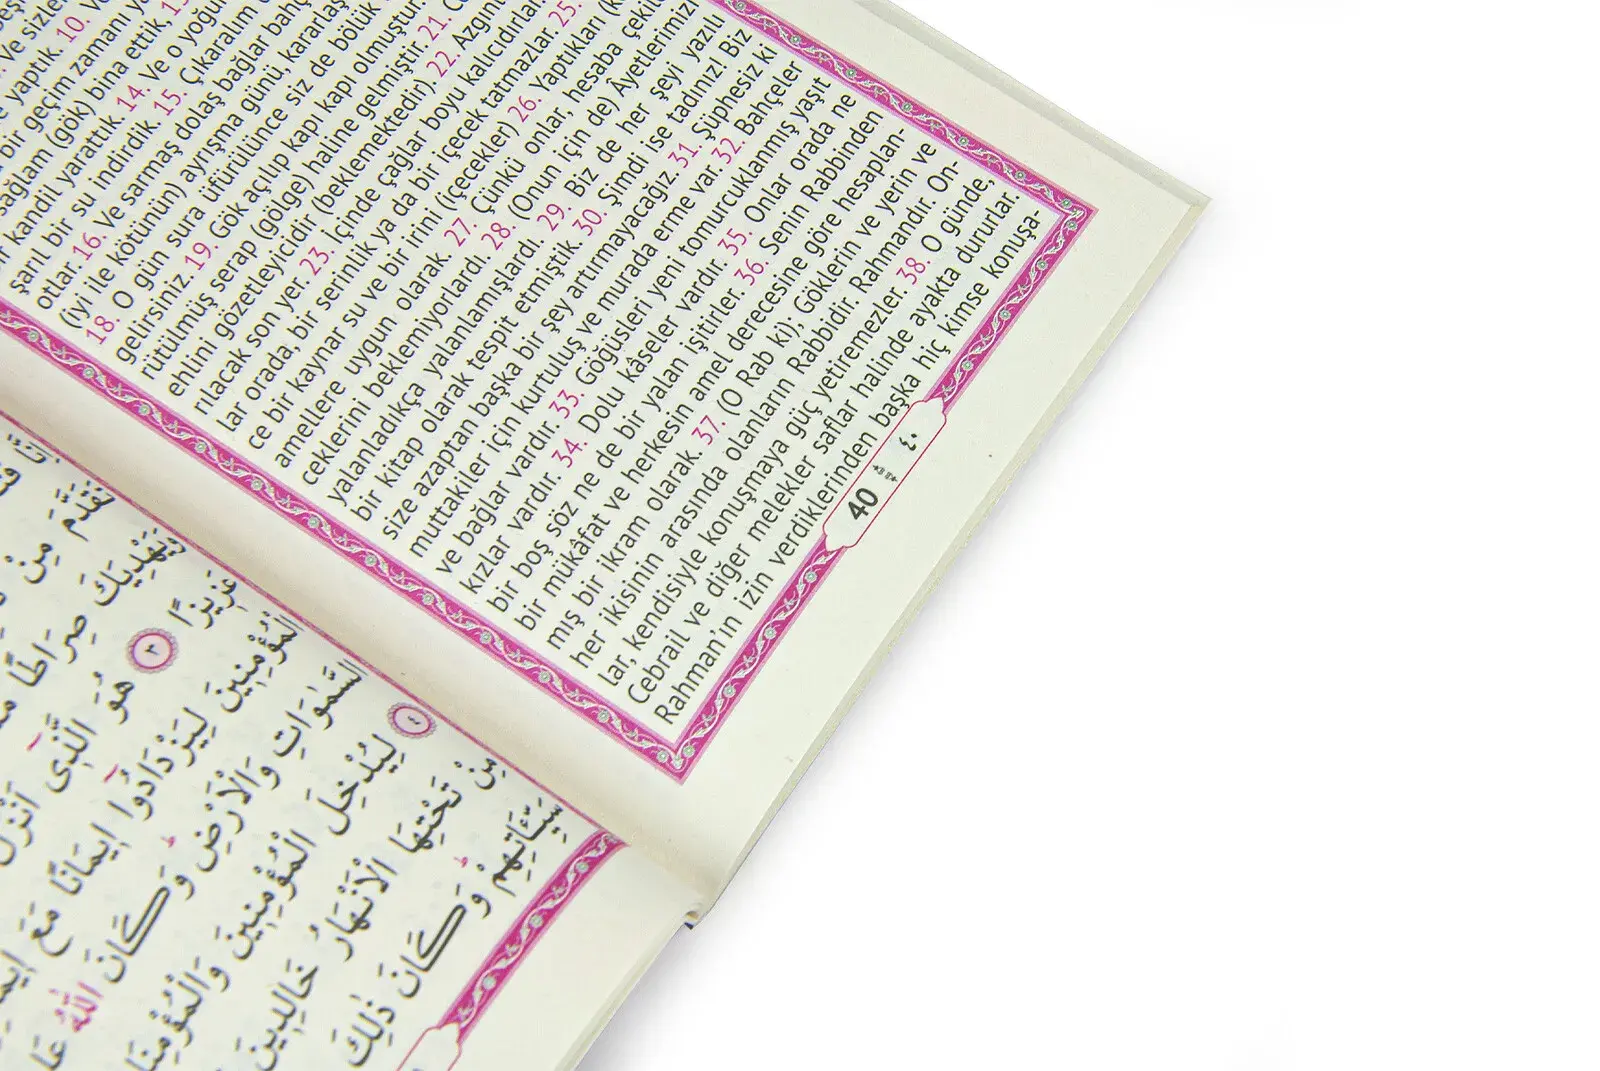 Ve sizler
yaptık. 10.
bir geçim zamanı
sağlam (gök) bina ettik. 13.
kandil yarattık. 14. Ve o yoğu
şarıl bir su indirdik 15. Çıkaralım
otlar. 16. Ve sarmaş dolaş bağlar bahç
(iyi ile kötünün) ayrışma günü, kararlaş
18. O gün sura üfürülünce siz de bölük
gelirsiniz 19. Gök açılıp kapı kapı olmuştur.
rütülmüş serap (gölge) haline gelmiştir. 21.
enlini gözetleyicidir (beklemektedir). 22. Azgın
rılacak son yer. 23. İçinde çağlar boyu kalıcıdırlar
lar orada, bir serinlik ya da bir içecek tatmazlar. 25.
ce bir kaynar su ve bir irini (içecekler) 26. Yaptıkları
amellere uygun olarak. 27. Çünkü onlar, hesaba çekile
ceklerini beklemiyorlardı. 28. (Onun için de) Âyetlerimizi
yalanladıkça yalanlamışlardı. 29. Biz de her şeyi yazılı
bir kitap olarak tespit etmiştik. 30. Şimdi ise tadınız! Biz
size azaptan başka bir şey artırmayacağız. 31. Şüphesiz ki
muttakiler için kurtuluş ve murada erme var. 32. Bahçeler
ve bağlar vardır. 33. Göğüsleri yeni tomurcuklanmış yaşıt
kızlar vardır. 34. Dolu kâseler vardır. 35. Onlar orada ne
bir boş söz ne de bir yalan işitirler. 36. Senin Rabbinden
bir mükâfat ve herkesin amel derecesine göre hesaplan-
mış bir ikram olarak. 37. (O Rab ki), Göklerin ve yerin ve
her ikisinin arasında olanların Rabbidir. Rahmandır. On-
lar, kendisiyle konuşmaya güç yetiremezler. 38. O günde,
Cebrail ve diğer melekler saflar halinde ayakta dururlar.
Rahman'ın izin verdiklerinden başka hiç kimse konuşa-
40 ٤٠
تَقَدَّمَ مِنْ
وَيَهْدِيَكَ صِرَاطًا
عَزِيزًا ٣ هُوَ الَّذِى اَنْزَلَ
الْمُؤْمِنِينَ لِيَزْدَادُوا اِيمَانًا مَعَ
السَّمٰوَاتِ وَالْاَرْضِ وَكَانَ اللّٰهُ
٤ لِيُدْخِلَ الْمُؤْمِنِينَ وَالْمُؤْمِنَا
مِنْ تَحْتِهَا الْاَنْهَارُ خَالِدِينَ
سَيِّـَٔاتِهِمْ وَكَانَ ذٰلِكَ